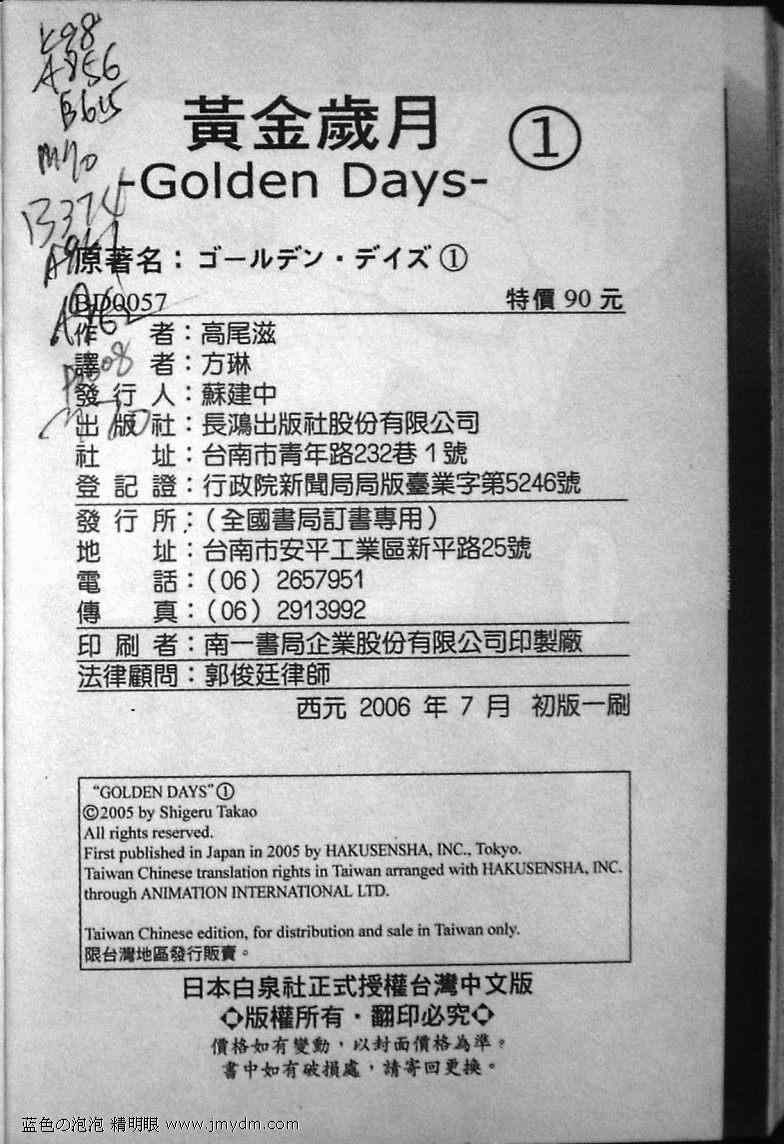 K98
A856
B645
M70
B374
黃金歲月 ①
-Golden Days-
原著名：ゴールデン・デイズ ①
BD0057 特價 90 元
作者：高尾滋
譯者：方琳
發行人：蘇建中
出版社：長鴻出版社股份有限公司
社址：台南市青年路232巷 1 號
登記證：行政院新聞局局版臺業字第5246號
發行所：（全國書局訂書專用）
地址：台南市安平工業區新平路25號
電話：（06）2657951
傳真：（06）2913992
印刷者：南一書局企業股份有限公司印製廠
法律顧問：郭俊廷律師
西元 2006 年 7 月 初版一刷
“GOLDEN DAYS”①
©2005 by Shigeru Takao
All rights reserved.
First published in Japan in 2005 by HAKUSENSHA, INC., Tokyo.
Taiwan Chinese translation rights in Taiwan arranged with HAKUSENSHA, INC.
through ANIMATION INTERNATIONAL LTD.
Taiwan Chinese edition, for distribution and sale in Taiwan only.
限台灣地區發行販賣。
日本白泉社正式授權台灣中文版
◇版權所有・翻印必究◇
價格如有變動，以封面價格為準。
書中如有破損處，請寄回更換。
蓝色の泡泡 精明眼 www.jmydm.com